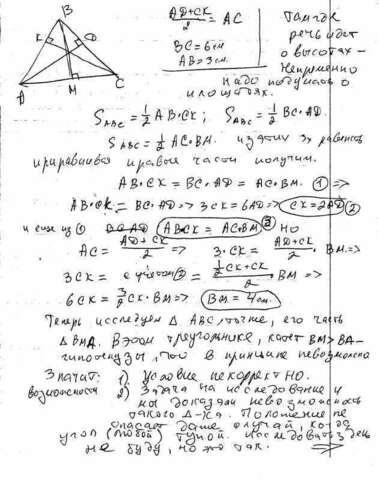 B
K D
A M C
AD+CK/2 = AC
BC=6см
AB=3см.
Там где
речь идёт
о высотах -
непременно
надо подумать о
площадях.
S_ABC = 1/2 AB·CK; S_ABC = 1/2 BC·AD.
S_ABC = 1/2 AC·BM. из этих 3х равенств
приравнивая правые части получим.
AB·CK = BC·AD = AC·BM. ① =>
AB·CK = BC·AD => 3CK = 6AD => CK=2AD ②
и ещё из ① AB·CK = AC·BM ③ но
AC = AD+CK/2 => 3·CK = AD+CK/2 · BM =>
3CK = с учётом ② = 1/2CK+CK/2 · BM =>
6CK = 3/2 CK·BM => BM = 4см.
Теперь исследуем Δ ABC, точнее, его часть
Δ BMA. В этом треугольнике, катет BM > BA-
гипотенузы, что в принципе невозможно
Значит: 1) Условие некорректно.
возможности 2) Задача на исследование и
мы доказали невозможность
такого Δ-ка. Положение не
спасает даже случай, когда
угол (любой) тупой. Исследовать здесь
не буду, но это так. =>